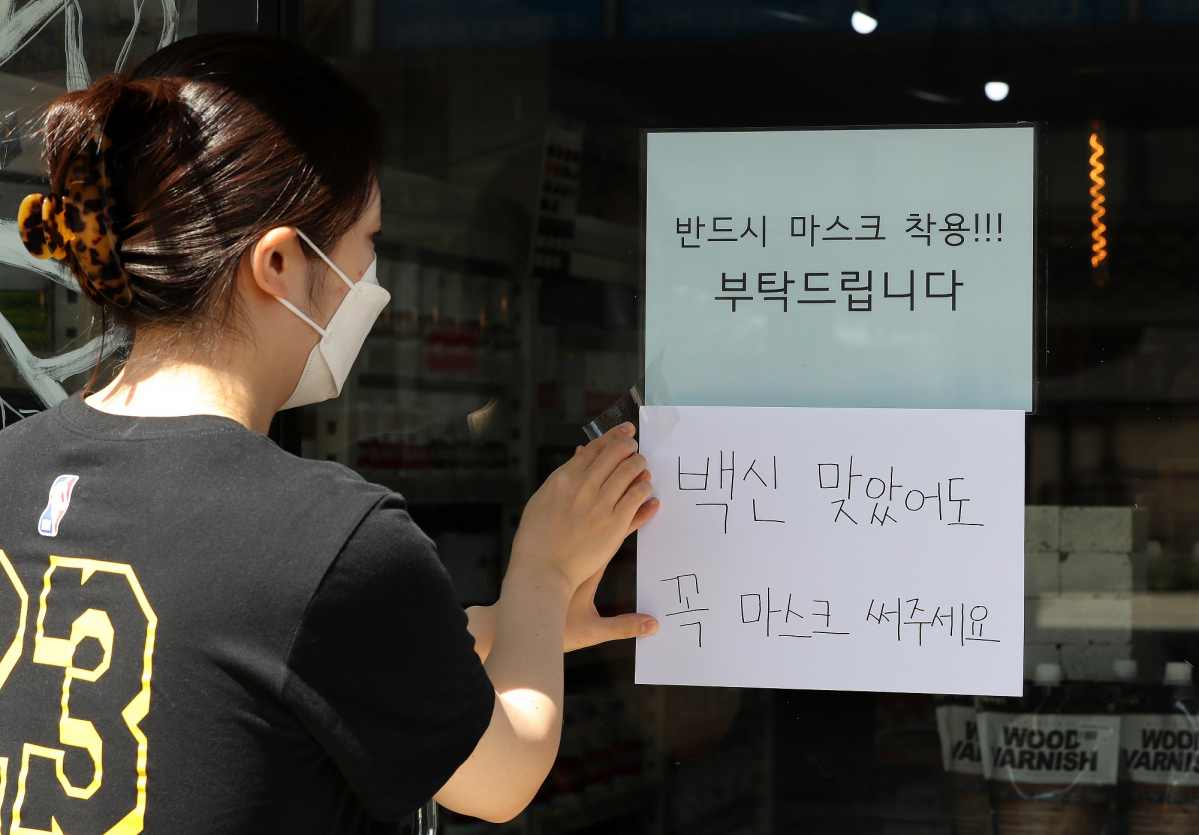 반드시 마스크 착용!!!
부탁드립니다
백신 맞았어도
꼭 마스크 써주세요
23
WOOD
VARNISH
WOOD
VARNISH